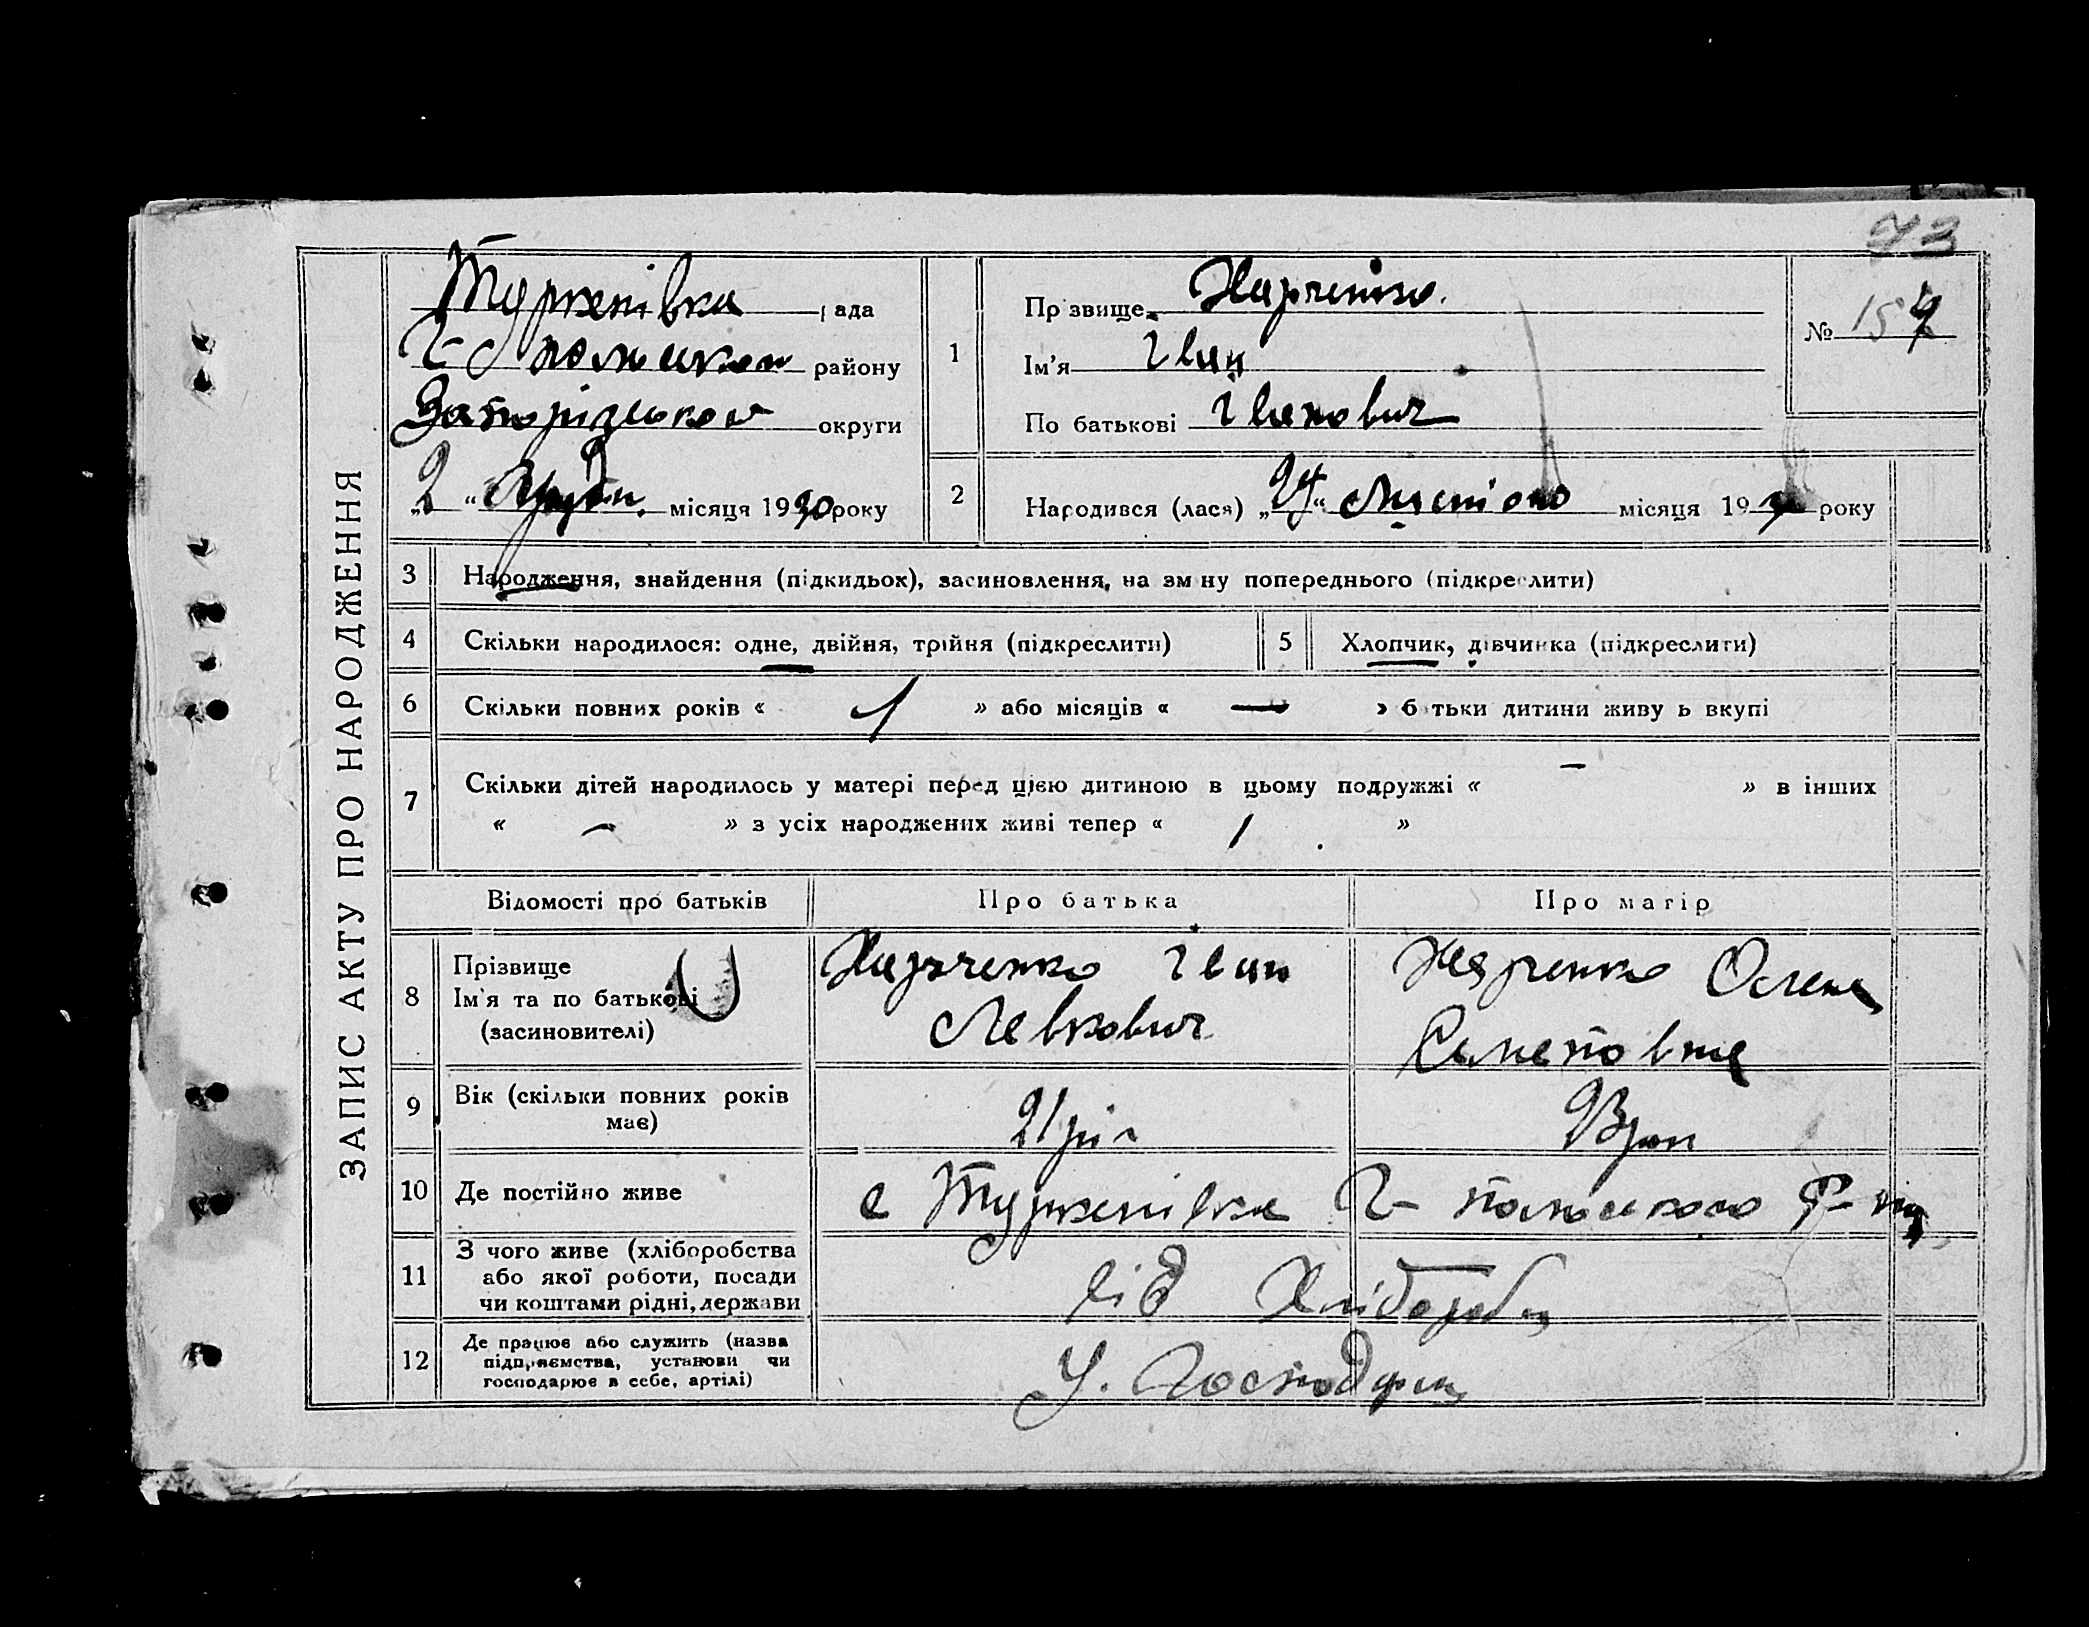 73
ЗАПИС АКТУ ПРО НАРОДЖЕННЯ
Туркенівка рада
району
Запорізької округи
„2“ Грудн. місяця 1930 року
1
Прізвище Харченко.
Ім'я Іван
По батькові Іванович
№ 157
2
Народився (лася) „24“ Листопо місяця 193 року
3 Народження, знайдення (підкидьох), засиновлення, на зміну попереднього (підкреслити)
4 Скільки народилося: одне, двійня, трійня (підкреслити)
5 Хлопчик, дівчинка (підкреслити)
6 Скільки повних років « 1 » або місяців « — » батьки дитини живуть вкупі
7 Скільки дітей народилось у матері перед цією дитиною в цьому подружжі « – » в інших
« – » з усіх народжених живі тепер « 1 »
Відомості про батьків Про батька Про матір
8 Прізвище
Ім'я та по батькові
(засиновителі)
Харченко Іван
Левкович
Харченко Олена
Семеновна
9 Вік (скільки повних років
має)
21 рік
10 Де постійно живе
с Туркенівка Г-польського р-ну
11 З чого живе (хліборобства
або якої роботи, посади
чи коштами рідні, держави
від Хлібороб
12 Де працює або служить (назва
підприємства, установи чи
господарює в себе, артілі)
У. Господар